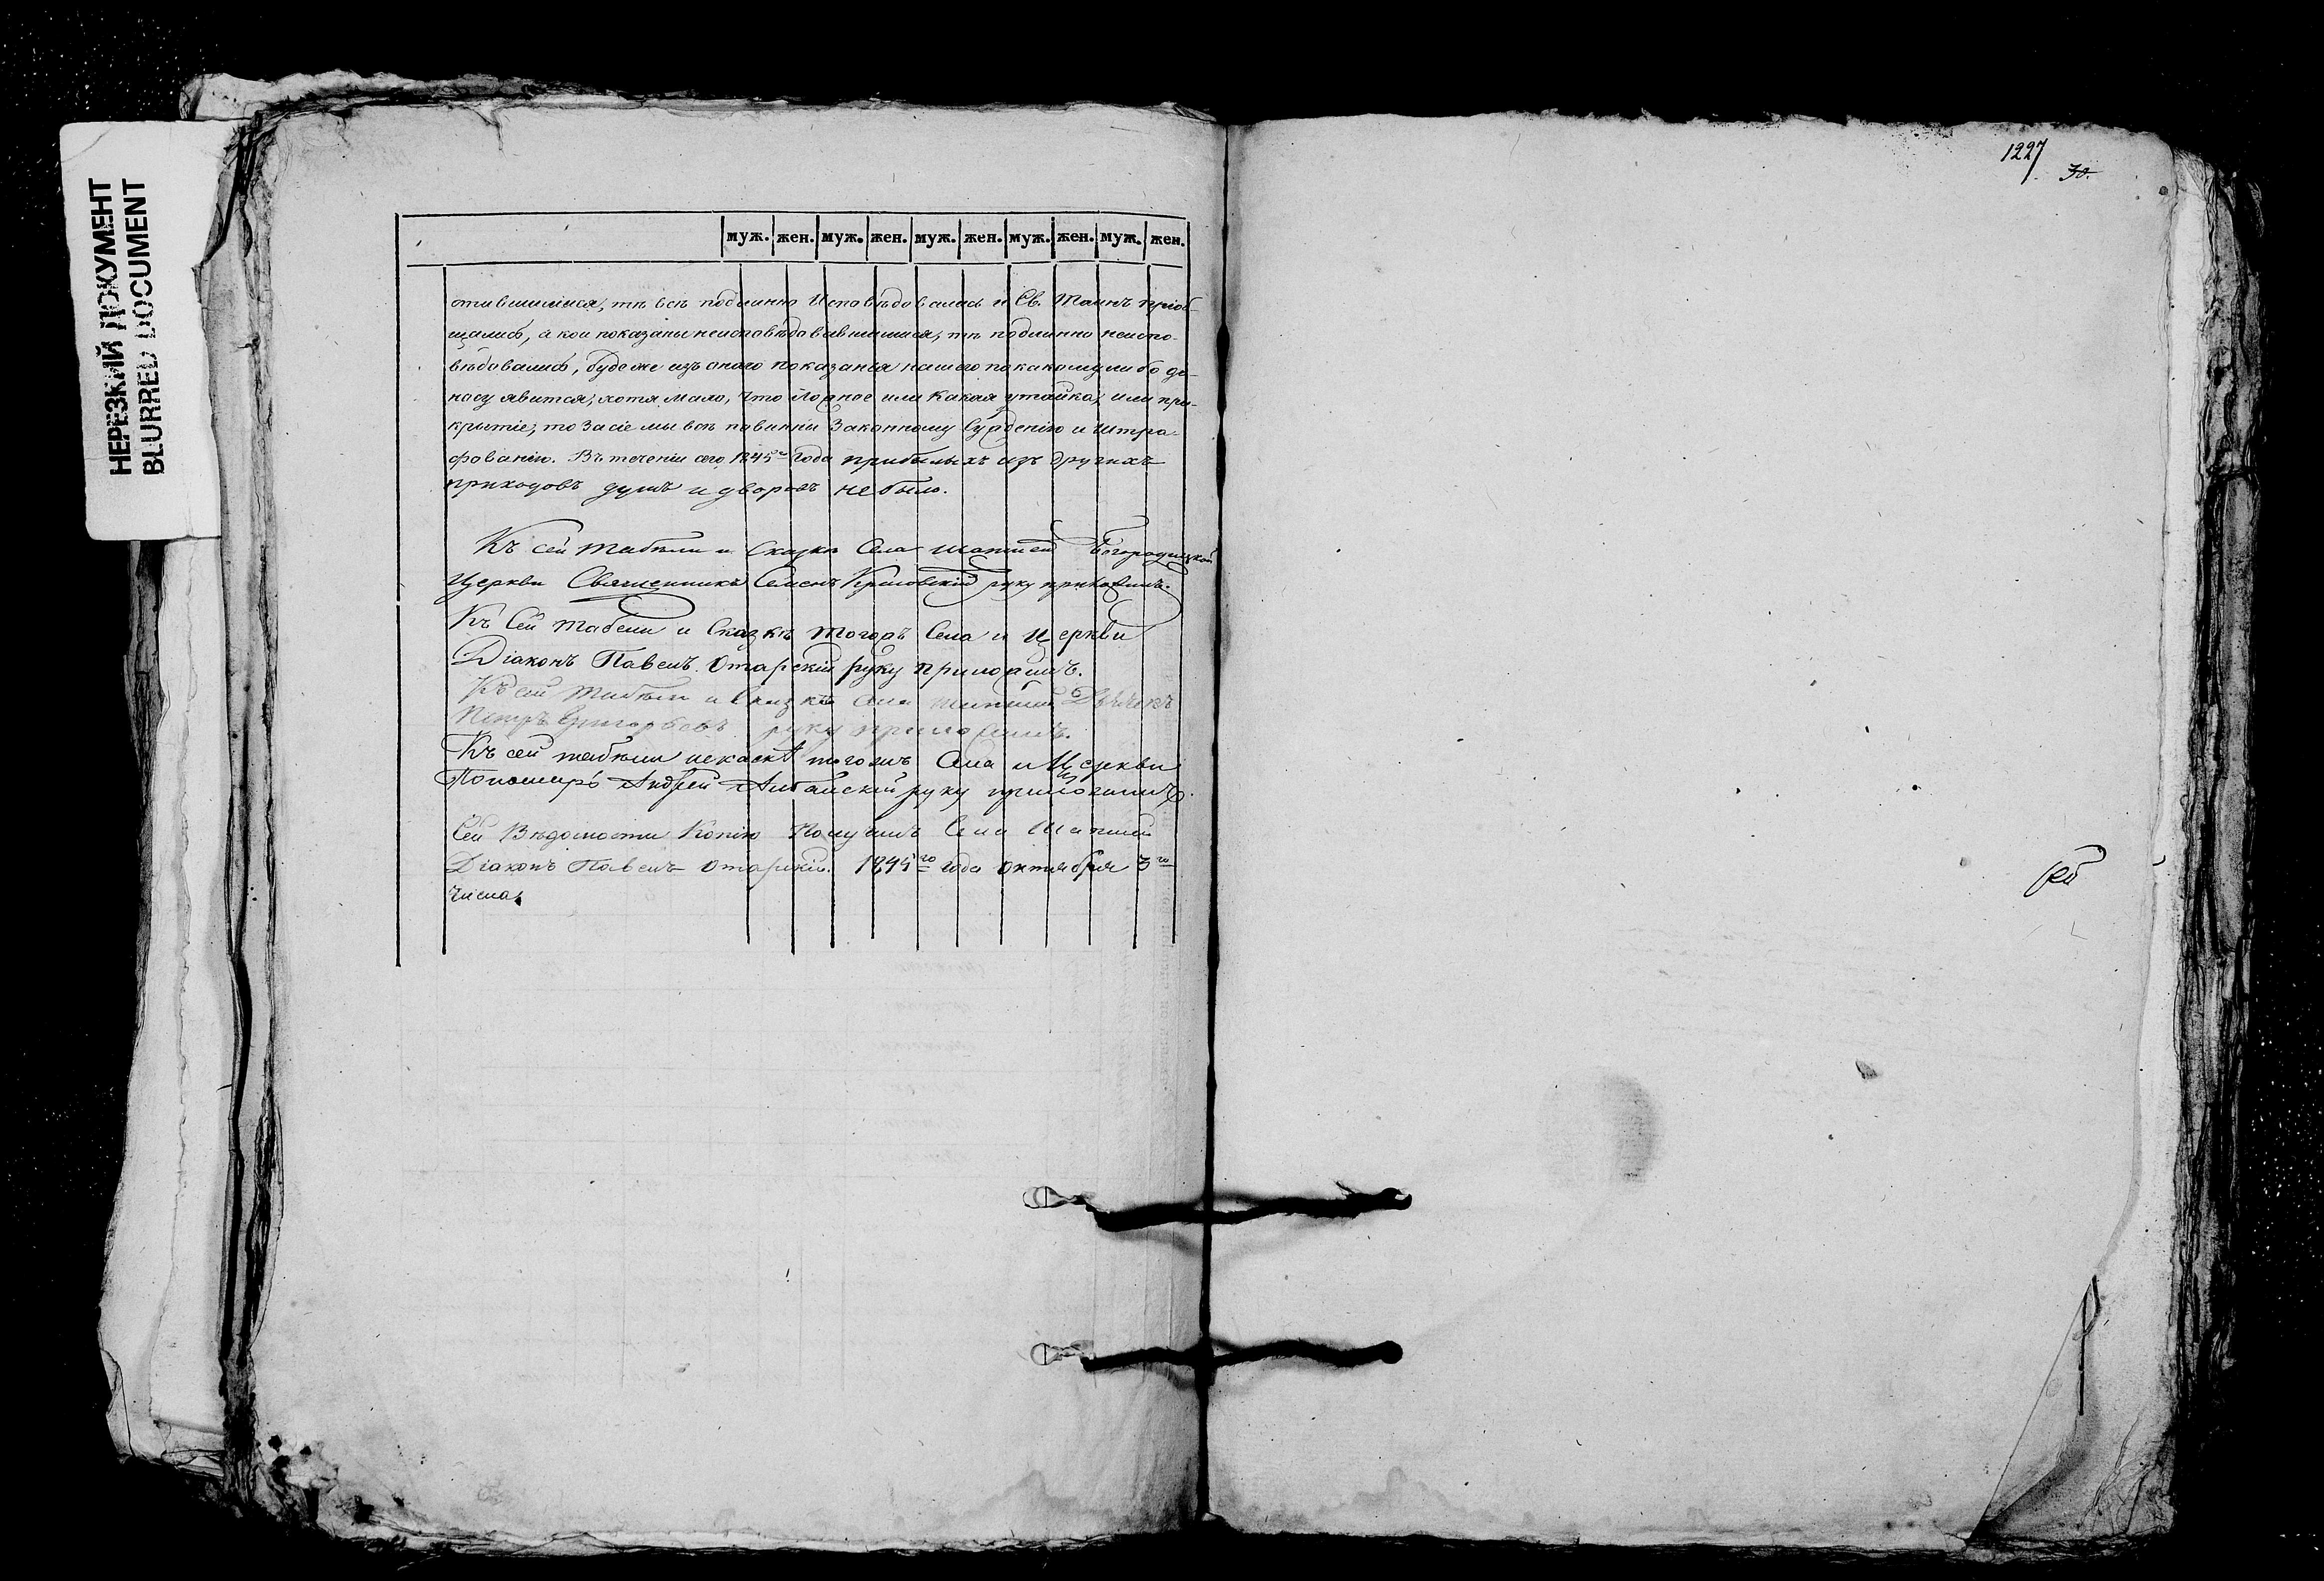 НЕРЕЗКИЙ ДОКУМЕНТ
BLURRED DOCUMENT
муж. жен. муж. жен. муж. жен. муж. жен. муж. жен.
тившимися, тѣ всѣ подлинно Исповѣдовались и Св. Таинъ пріоб-
щались, а кои показаны неисповѣдовавшимися, тѣ подлинно неиспо-
вѣдовались, буде же изъ онаго показанія нашего по какому либо до-
носу явится, хотя мало, что ложное или какая утайка, или при-
крытіе, то за сіе мы всѣ повинны Законному Сужденію и штра-
фованію. Въ теченіи сего 1845го Года прибылыхъ изъ другихъ
приходовъ душъ и дворовъ не было.
Къ сей табели и Сказкѣ Села Богородицкой
Церкви Священникъ Семенъ руку приложилъ.
Къ Сей табели и Сказкѣ тогожъ Села и Церкви
Діаконъ Павелъ Отарскій руку приложилъ.
Къ сей табели и Сказкѣ Села Дьячекъ
Петръ Григорьевъ руку приложилъ.
Къ сей табели тогожъ Села и Церкви
Пономарь Андрей руку приложилъ.
Сей Вѣдомости Копію Получилъ Села
Діаконъ Павелъ Отарскій. 1845го года Октября 3го
числа.
1227
30.